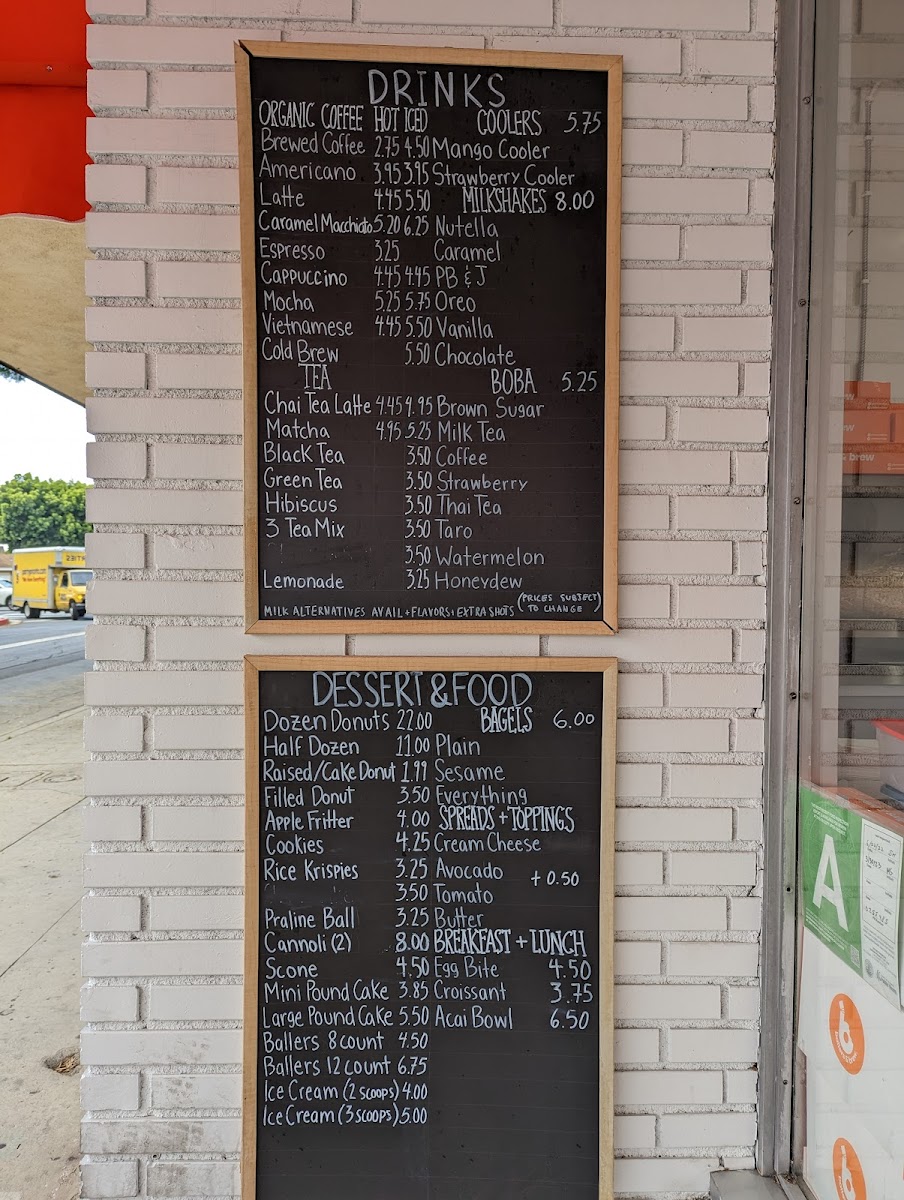 DRINKS
ORGANIC COFFEE HOT ICED
Brewed Coffee 2.75 4.50
Americano 3.95 3.95
Latte 4.45 5.50
Caramel Macchiato 5.20 6.25
Espresso 3.25
Cappuccino 4.45 4.45
Mocha 5.25 5.75
Vietnamese 4.45 5.50
Cold Brew 5.50
TEA
Chai Tea Latte 4.45 4.95
Matcha 4.95 5.25
Black Tea 3.50
Green Tea 3.50
Hibiscus 3.50
3 Tea Mix 3.50
3.50
Lemonade 3.25
COOLERS 5.75
Mango Cooler
Strawberry Cooler
MILKSHAKES 8.00
Nutella
Caramel
PB & J
Oreo
Vanilla
Chocolate
BOBA 5.25
Brown Sugar
Milk Tea
Coffee
Strawberry
Thai Tea
Taro
Watermelon
Honeydew
MILK ALTERNATIVES AVAIL + FLAVORS + EXTRA SHOTS
(PRICES SUBJECT
TO CHANGE)
DESSERT & FOOD
Dozen Donuts 22.00
Half Dozen 11.00
Raised/Cake Donut 1.99
Filled Donut 3.50
Apple Fritter 4.00
Cookies 4.25
Rice Krispies 3.25
3.50
Praline Ball 3.25
Cannoli (2) 8.00
Scone 4.50
Mini Pound Cake 3.85
Large Pound Cake 5.50
Ballers 8 count 4.50
Ballers 12 count 6.75
Ice Cream (2 scoops) 4.00
Ice Cream (3 scoops) 5.00
BAGELS 6.00
Plain
Sesame
Everything
SPREADS + TOPPINGS
Cream Cheese
Avocado + 0.50
Tomato
Butter
BREAKFAST + LUNCH
Egg Bite 4.50
Croissant 3.75
Acai Bowl 6.50
A
b
b